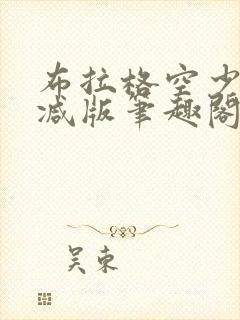 布拉格空少
减版笔趣阁
吴东